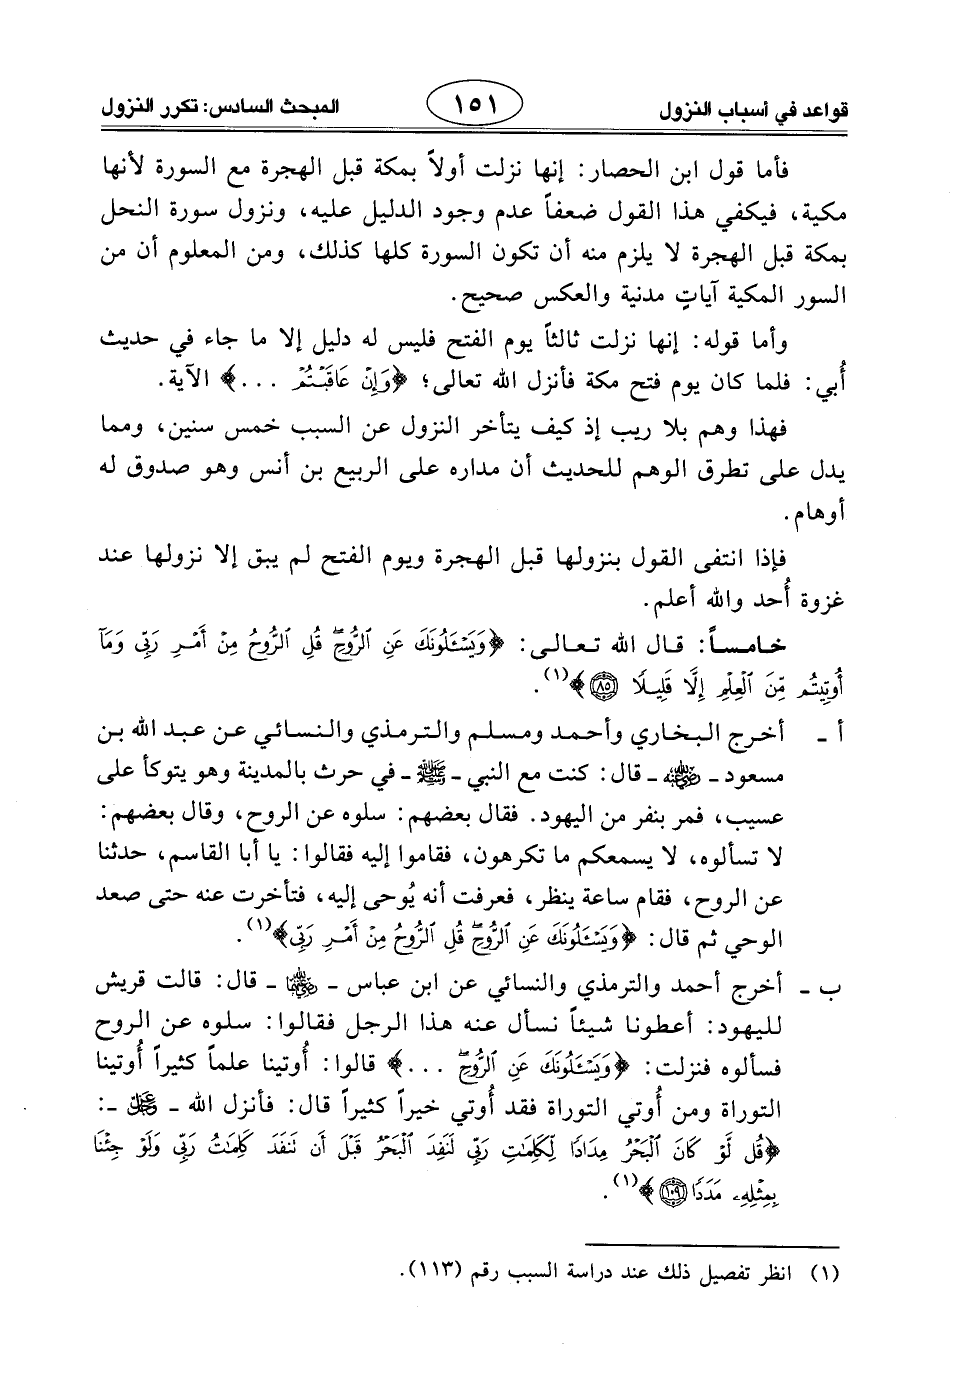 قواعد في أسباب النزول ١٥١ المبحث السادس: تكرر النزول
فأما قول ابن الحصار: إنها نزلت أولاً بمكة قبل الهجرة مع السورة لأنها
مكية، فيكفي هذا القول ضعفاً عدم وجود الدليل عليه، ونزول سورة النحل
بمكة قبل الهجرة لا يلزم منه أن تكون السورة كلها كذلك، ومن المعلوم أن من
السور المكية آياتٍ مدنية والعكس صحيح.
وأما قوله: إنها نزلت ثالثاً يوم الفتح فليس له دليل إلا ما جاء في حديث
أُبي: فلما كان يوم فتح مكة فأنزل الله تعالى؛ ﴿وَإِنْ عَاقَبْتُمْ ...﴾ الآية.
فهذا وهم بلا ريب إذ كيف يتأخر النزول عن السبب خمس سنين، ومما
يدل على تطرق الوهم للحديث أن مداره على الربيع بن أنس وهو صدوق له
أوهام.
فإذا انتفى القول بنزولها قبل الهجرة ويوم الفتح لم يبق إلا نزولها عند
غزوة أُحد والله أعلم.
خامساً: قال الله تعالى: ﴿وَيَسْـَٔلُونَكَ عَنِ ٱلرُّوحِ ۖ قُلِ ٱلرُّوحُ مِنْ أَمْرِ رَبِّى وَمَآ
أُوتِيتُم مِّنَ ٱلْعِلْمِ إِلَّا قَلِيلًا ٨٥﴾(١).
أ ـ أخرج البخاري وأحمد ومسلم والترمذي والنسائي عن عبد الله بن
مسعود ـ رضي الله عنه ـ قال: كنت مع النبي ـ ﷺ ـ في حرث بالمدينة وهو يتوكأ على
عسيب، فمر بنفر من اليهود. فقال بعضهم: سلوه عن الروح، وقال بعضهم:
لا تسألوه، لا يسمعكم ما تكرهون، فقاموا إليه فقالوا: يا أبا القاسم، حدثنا
عن الروح، فقام ساعة ينظر، فعرفت أنه يُوحى إليه، فتأخرت عنه حتى صعد
الوحي ثم قال: ﴿وَيَسْـَٔلُونَكَ عَنِ ٱلرُّوحِ ۖ قُلِ ٱلرُّوحُ مِنْ أَمْرِ رَبِّى﴾(١).
ب ـ أخرج أحمد والترمذي والنسائي عن ابن عباس ـ رضي الله عنهما ـ قال: قالت قريش
لليهود: أعطونا شيئاً نسأل عنه هذا الرجل فقالوا: سلوه عن الروح
فسألوه فنزلت: ﴿وَيَسْـَٔلُونَكَ عَنِ ٱلرُّوحِ ۖ ...﴾ قالوا: أُوتينا علماً كثيراً أُوتينا
التوراة ومن أُوتي التوراة فقد أُوتي خيراً كثيراً قال: فأنزل الله ـ عز وجل ـ:
﴿قُل لَّوْ كَانَ ٱلْبَحْرُ مِدَادًا لِّكَلِمَٰتِ رَبِّى لَنَفِدَ ٱلْبَحْرُ قَبْلَ أَن تَنفَدَ كَلِمَٰتُ رَبِّى وَلَوْ جِئْنَا
بِمِثْلِهِۦ مَدَدًا ١٠٩﴾(١).
(١) انظر تفصيل ذلك عند دراسة السبب رقم (١١٣).